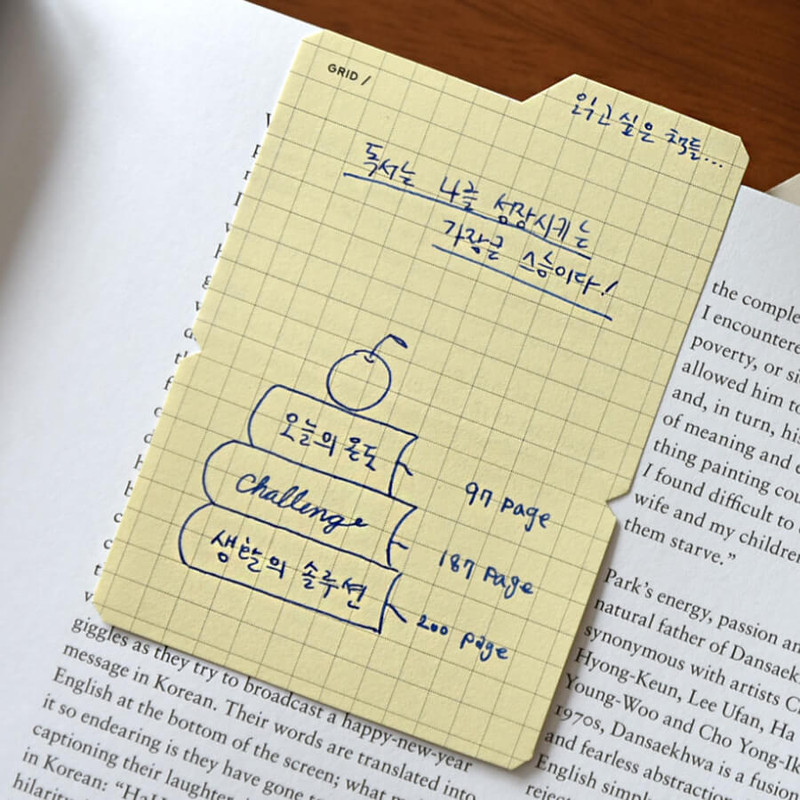 GRID /
읽고 싶은 책들...
독서는 나를 성장시키는
가장큰 스승이다!
오늘의 온도
97 page
Challenge
187 page
생활의 솔루션
200 page
the comple
I encountere
poverty, or si
allowed him to
and, in turn, his
of meaning and
thing painting cou
I found difficult to
wife and my children
them starve.”
Park’s energy, passion an
natural father of Dansaek
synonymous with artists C
Hyong-Keun, Lee Ufan, Ha
Young-Woo and Cho Yong-Ik
1970s, Dansaekhwa is a fusion
and fearless abstraction
English simp
reject
giggles as they try to broadcast a happy-new-year
message in Korean. Their words are translated into
English at the bottom of the screen; what m
it so endearing is they have gone to
captioning their laughter
in Korean: “HaH
hilarity